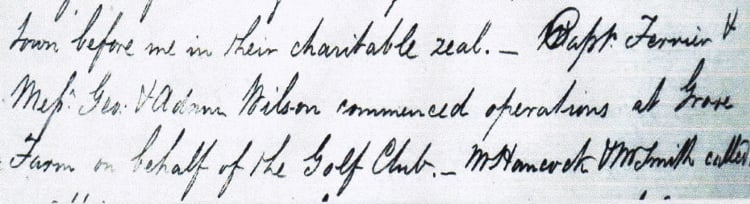 town before me in their charitable zeal. — Capt. Ferrier &
Messrs. Geo. & Adam Wilson commenced operations at Grove
Farm on behalf of the Golf Club. — Mr Hancock & Mr Smith called